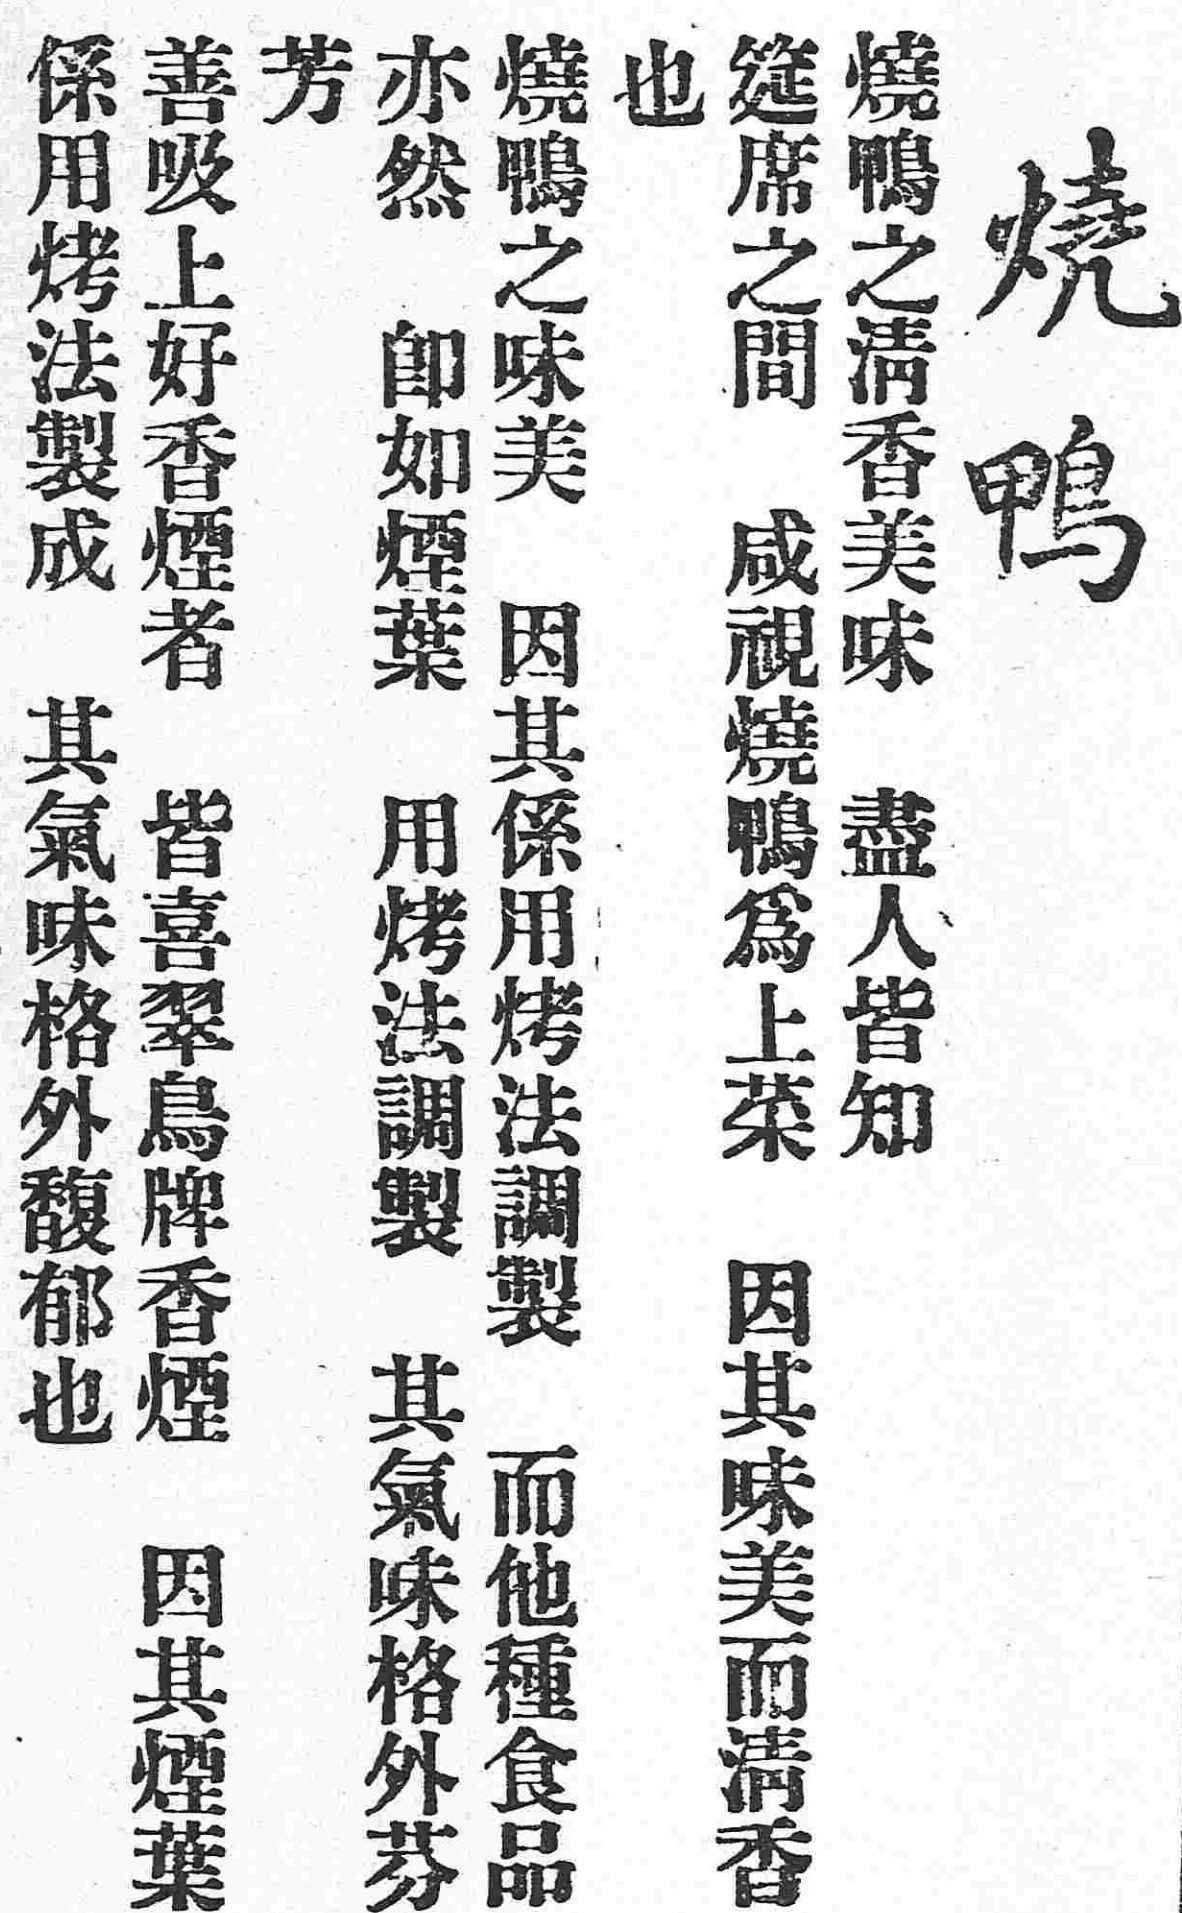 燒鴨
燒鴨之淸香美味　盡人皆知
筵席之間　咸視燒鴨爲上菜　因其味美而淸香
也
燒鴨之味美　因其係用烤法調製　而他種食品
亦然　卽如煙葉　用烤法調製　其氣味格外芬
芳
善吸上好香煙者　皆喜翠鳥牌香煙　因其煙葉
係用烤法製成　其氣味格外馥郁也